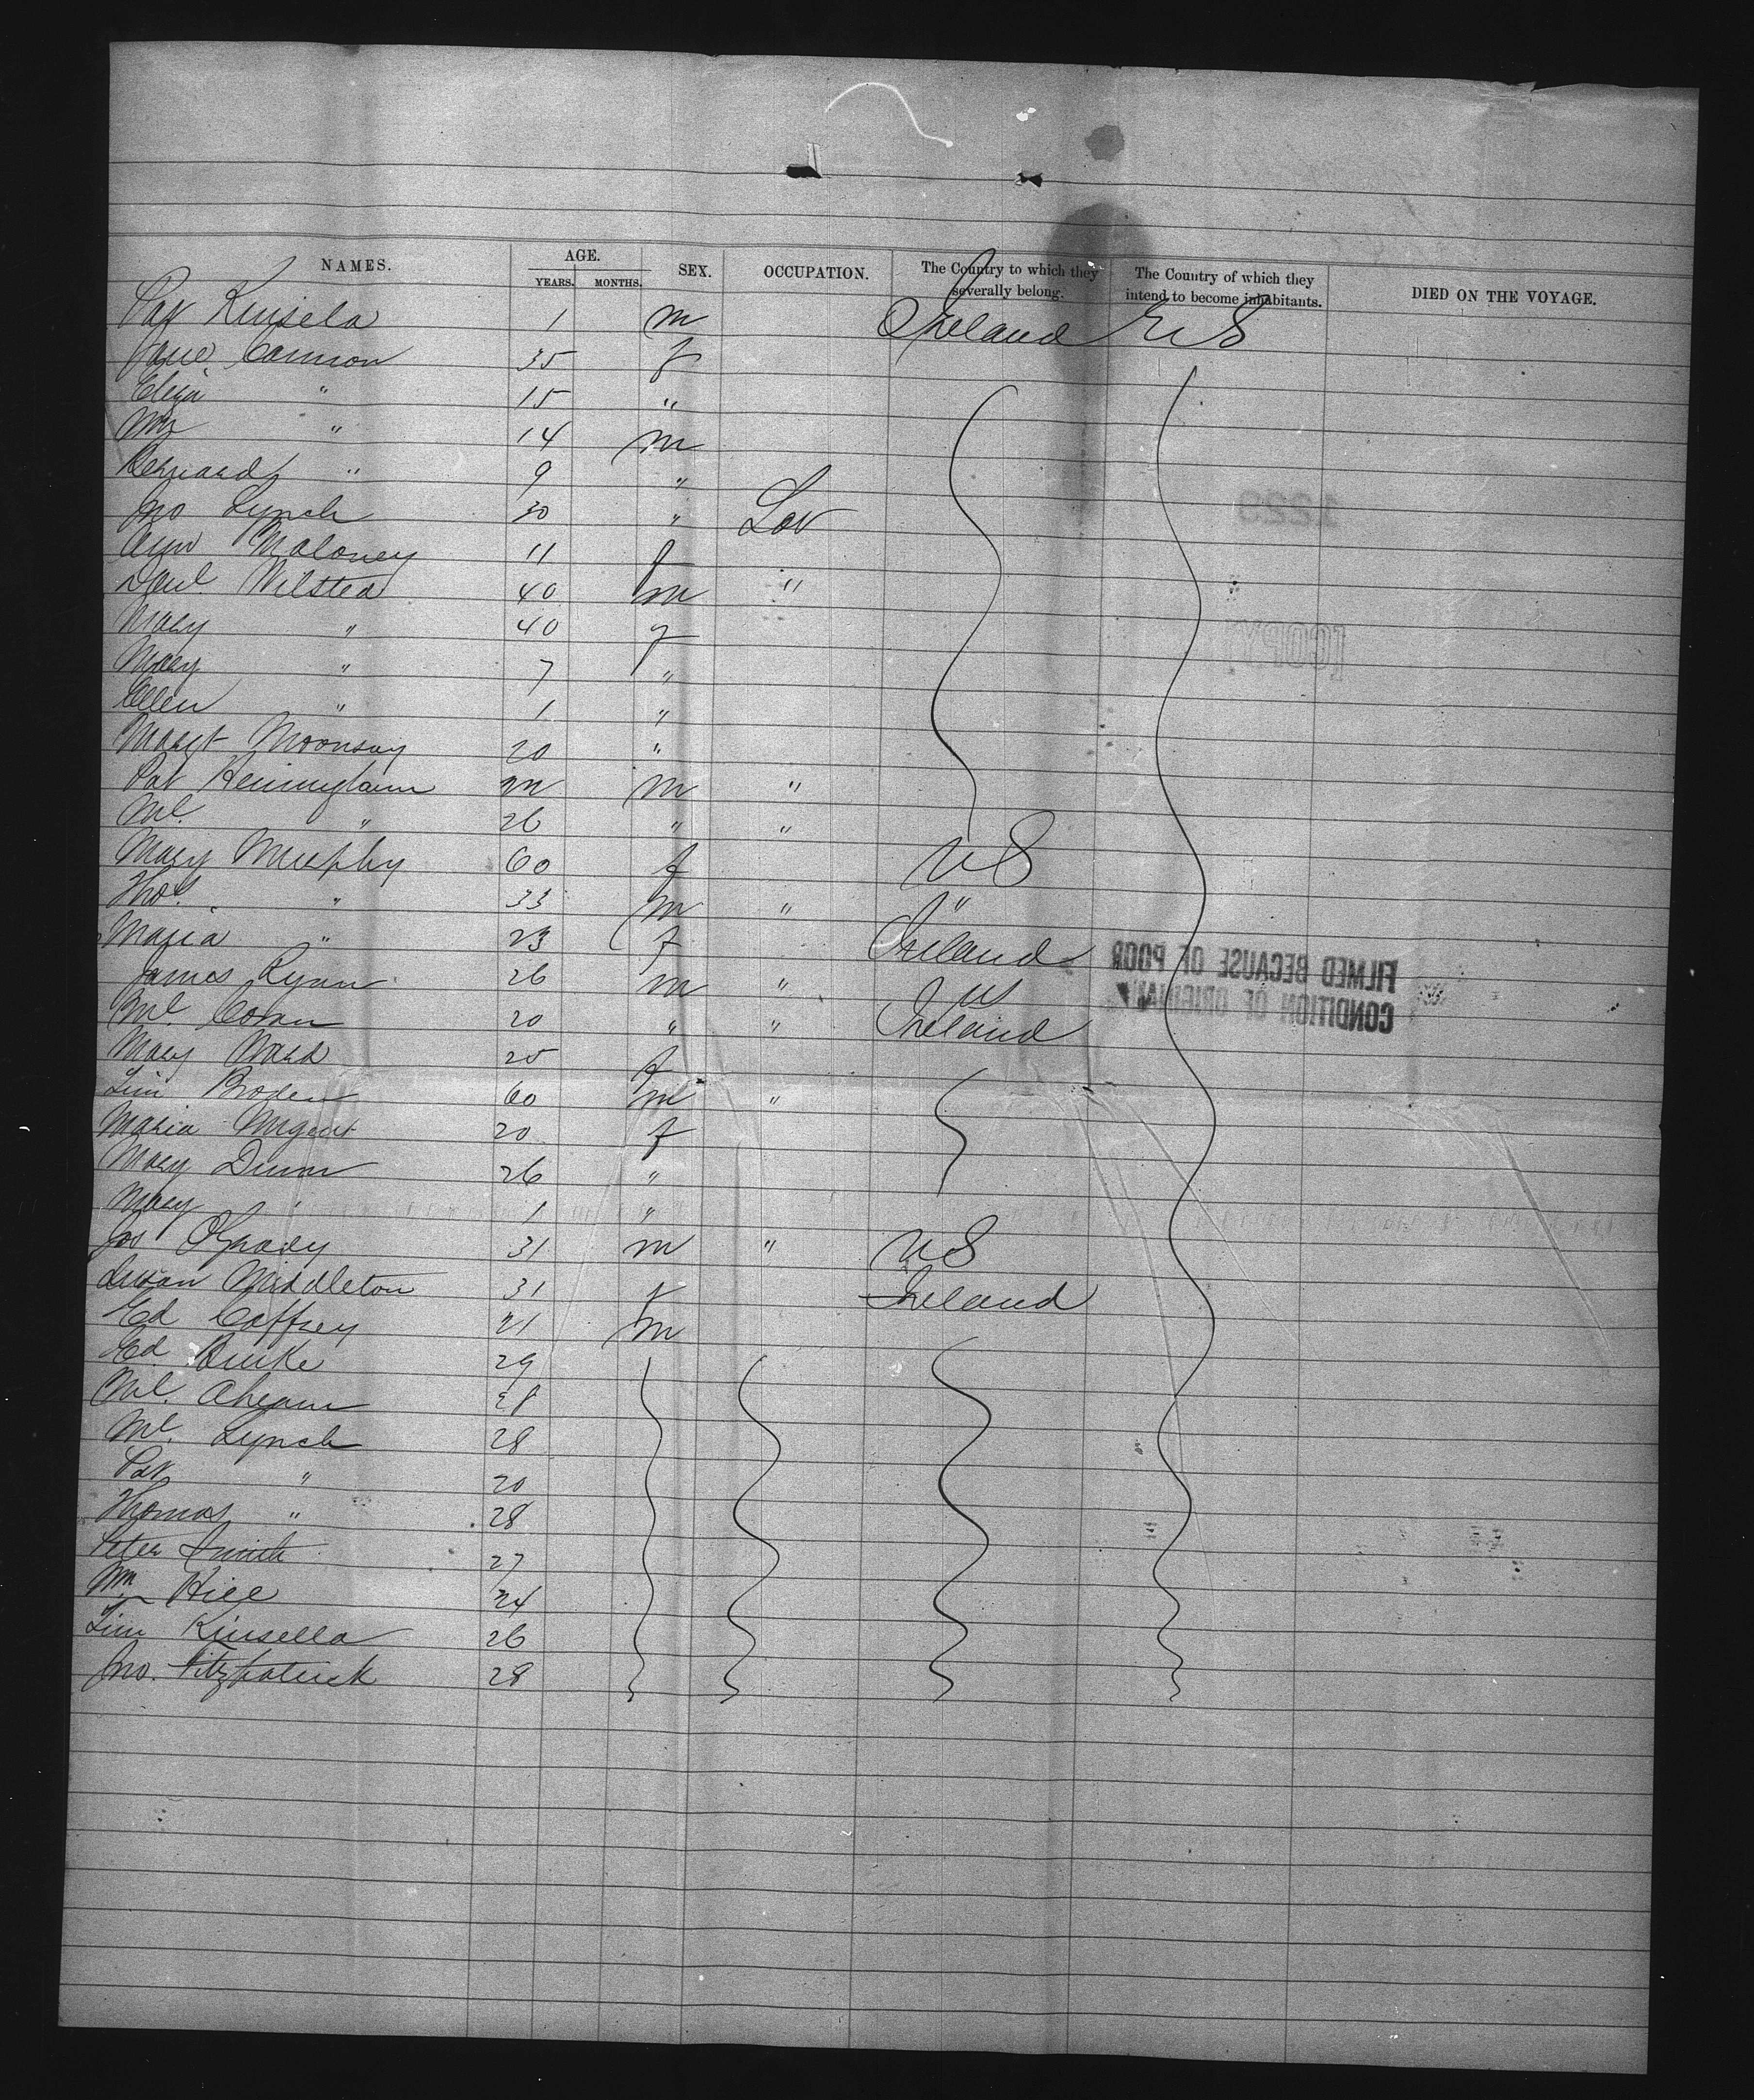 NAMES. AGE. SEX. OCCUPATION. The Country to which they severally belong. The Country of which they intend to become inhabitants. DIED ON THE VOYAGE.
YEARS. MONTHS.
Pat Kinsela 1 m Ireland U S
Jane Cannon 35 f
Eliza " 15 "
Wm " 14 m
Bernard " 9 "
Jno Lynch 30 " Lab
Ann Maloney 11 f
Danl. Wilsted 40 m "
Mary " 40 f
Mary " 7 "
Ellen " 1 "
Margt 20 "
Pat 22 m "
Ml. " 26 " "
Mary Murphy 60 f U S
Thos. " 33 m " "
Maria " 23 f Ireland
James Ryan 26 m " US
Ml. 20 " " Ireland
Mary Ward 25 f
Tim Broden 60 m "
Maria Nugent 20 f
Mary Dunn 26 "
Mary " 1 "
Jos OGrady 31 m " U S
Susan Middleton 31 f Ireland
Ed Caffrey 21 m
Ed. Burke 29
Ml. Ahearn 28
Ml. Lynch 28
Pat " 20
Thomas " 28
Peter Smith 27
Wm Hill 24
Tim Kinsella 26
Jno. Fitzpatrick 28
1229
[COPY]
FILMED BECAUSE OF POOR
CONDITION OF ORIGINAL